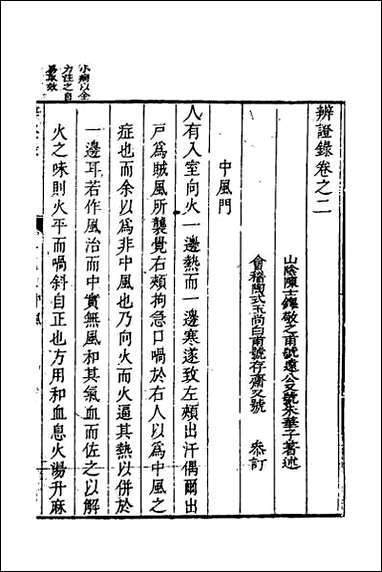 辨證錄卷之二
山陰陳士鐸敬之甫號遠公又號朱華子著述
會稽陶式玉尚白甫號存齋又號 參訂
中風門
人有入室向火一邊熱而一邊寒遂致左頰出汗偶爾出
戸爲賊風所襲覺右頰拘急口喎於右人以爲中風之
症也而余以爲非中風也乃向火而火逼其熱以併於
一邊耳若作風治而中實無風和其氣血而佐之以解
火之味則火平而喎斜自正也方用和血息火湯升麻
小病以全
力注之自
易取效